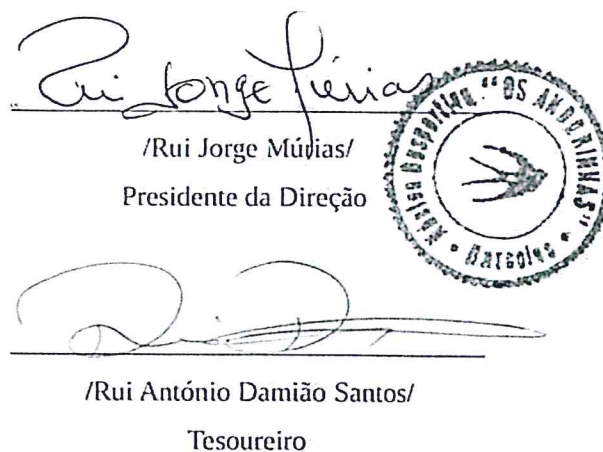 Rui Jorge Múrias
/Rui Jorge Múrias/
Presidente da Direção
Núcleo Desportivo "OS ANDORINHAS"
/Rui António Damião Santos/
Tesoureiro